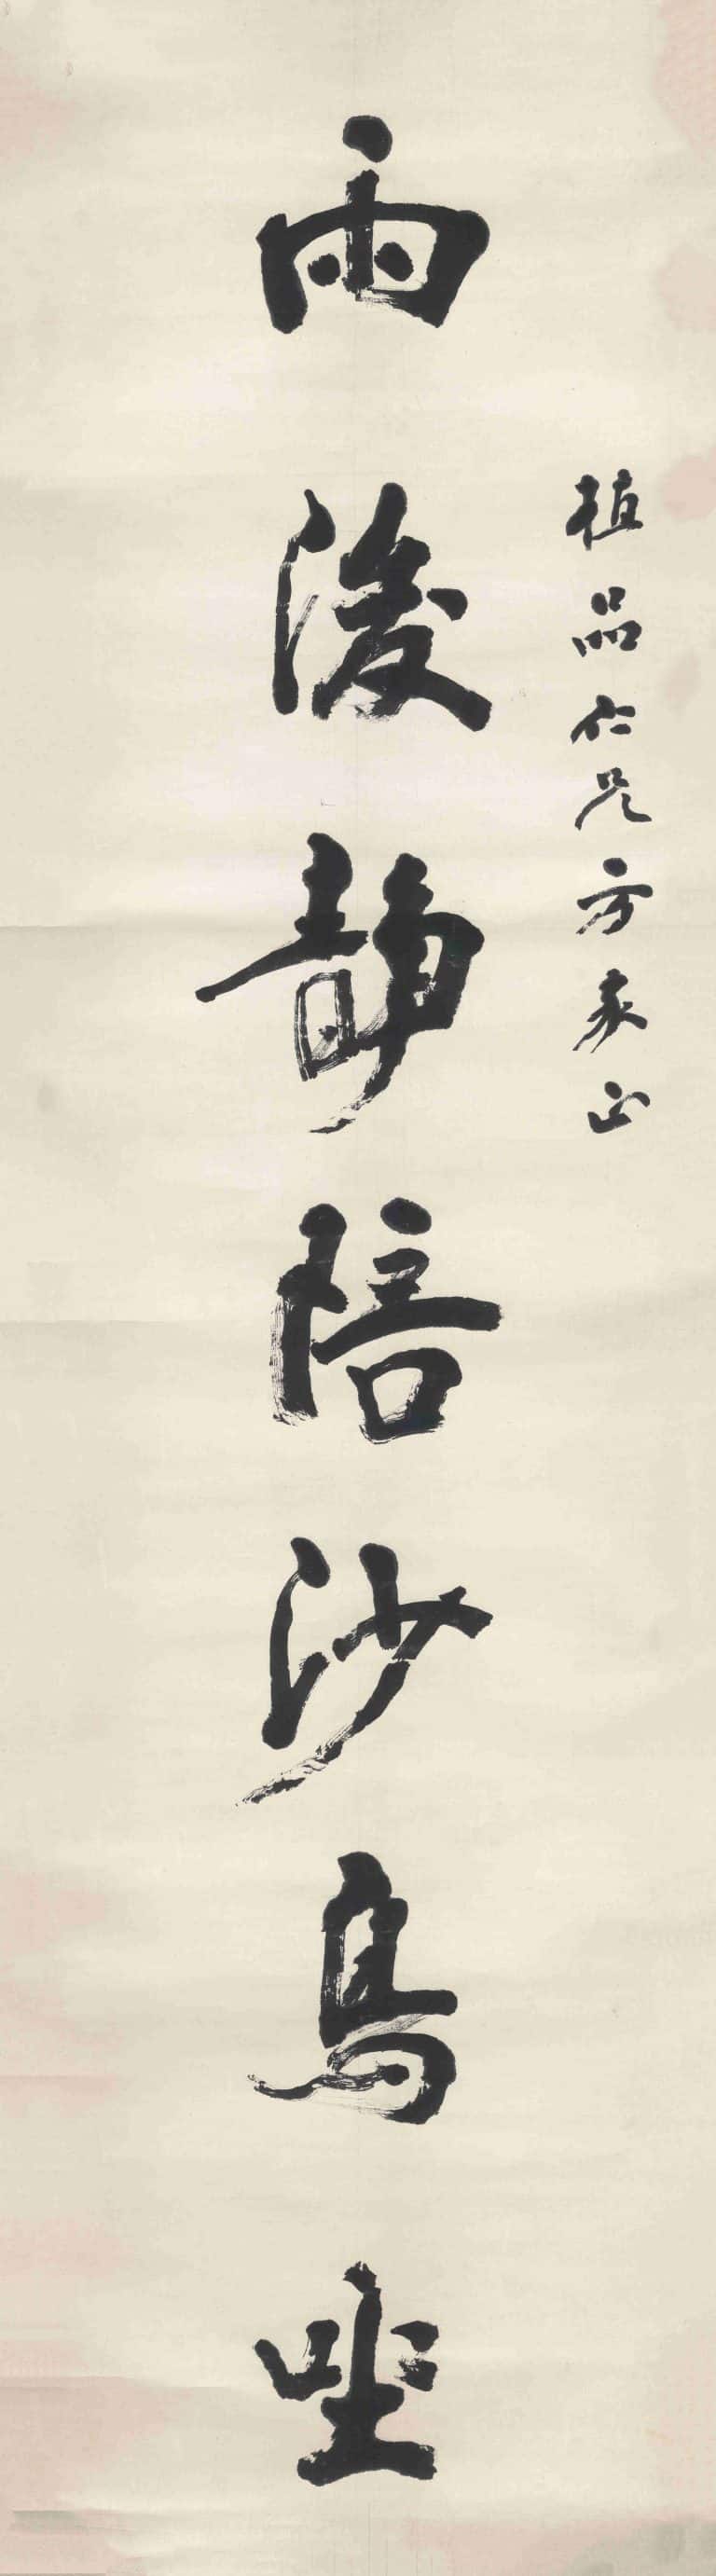 植品仁兄方家正
雨後靜陪沙鳥坐